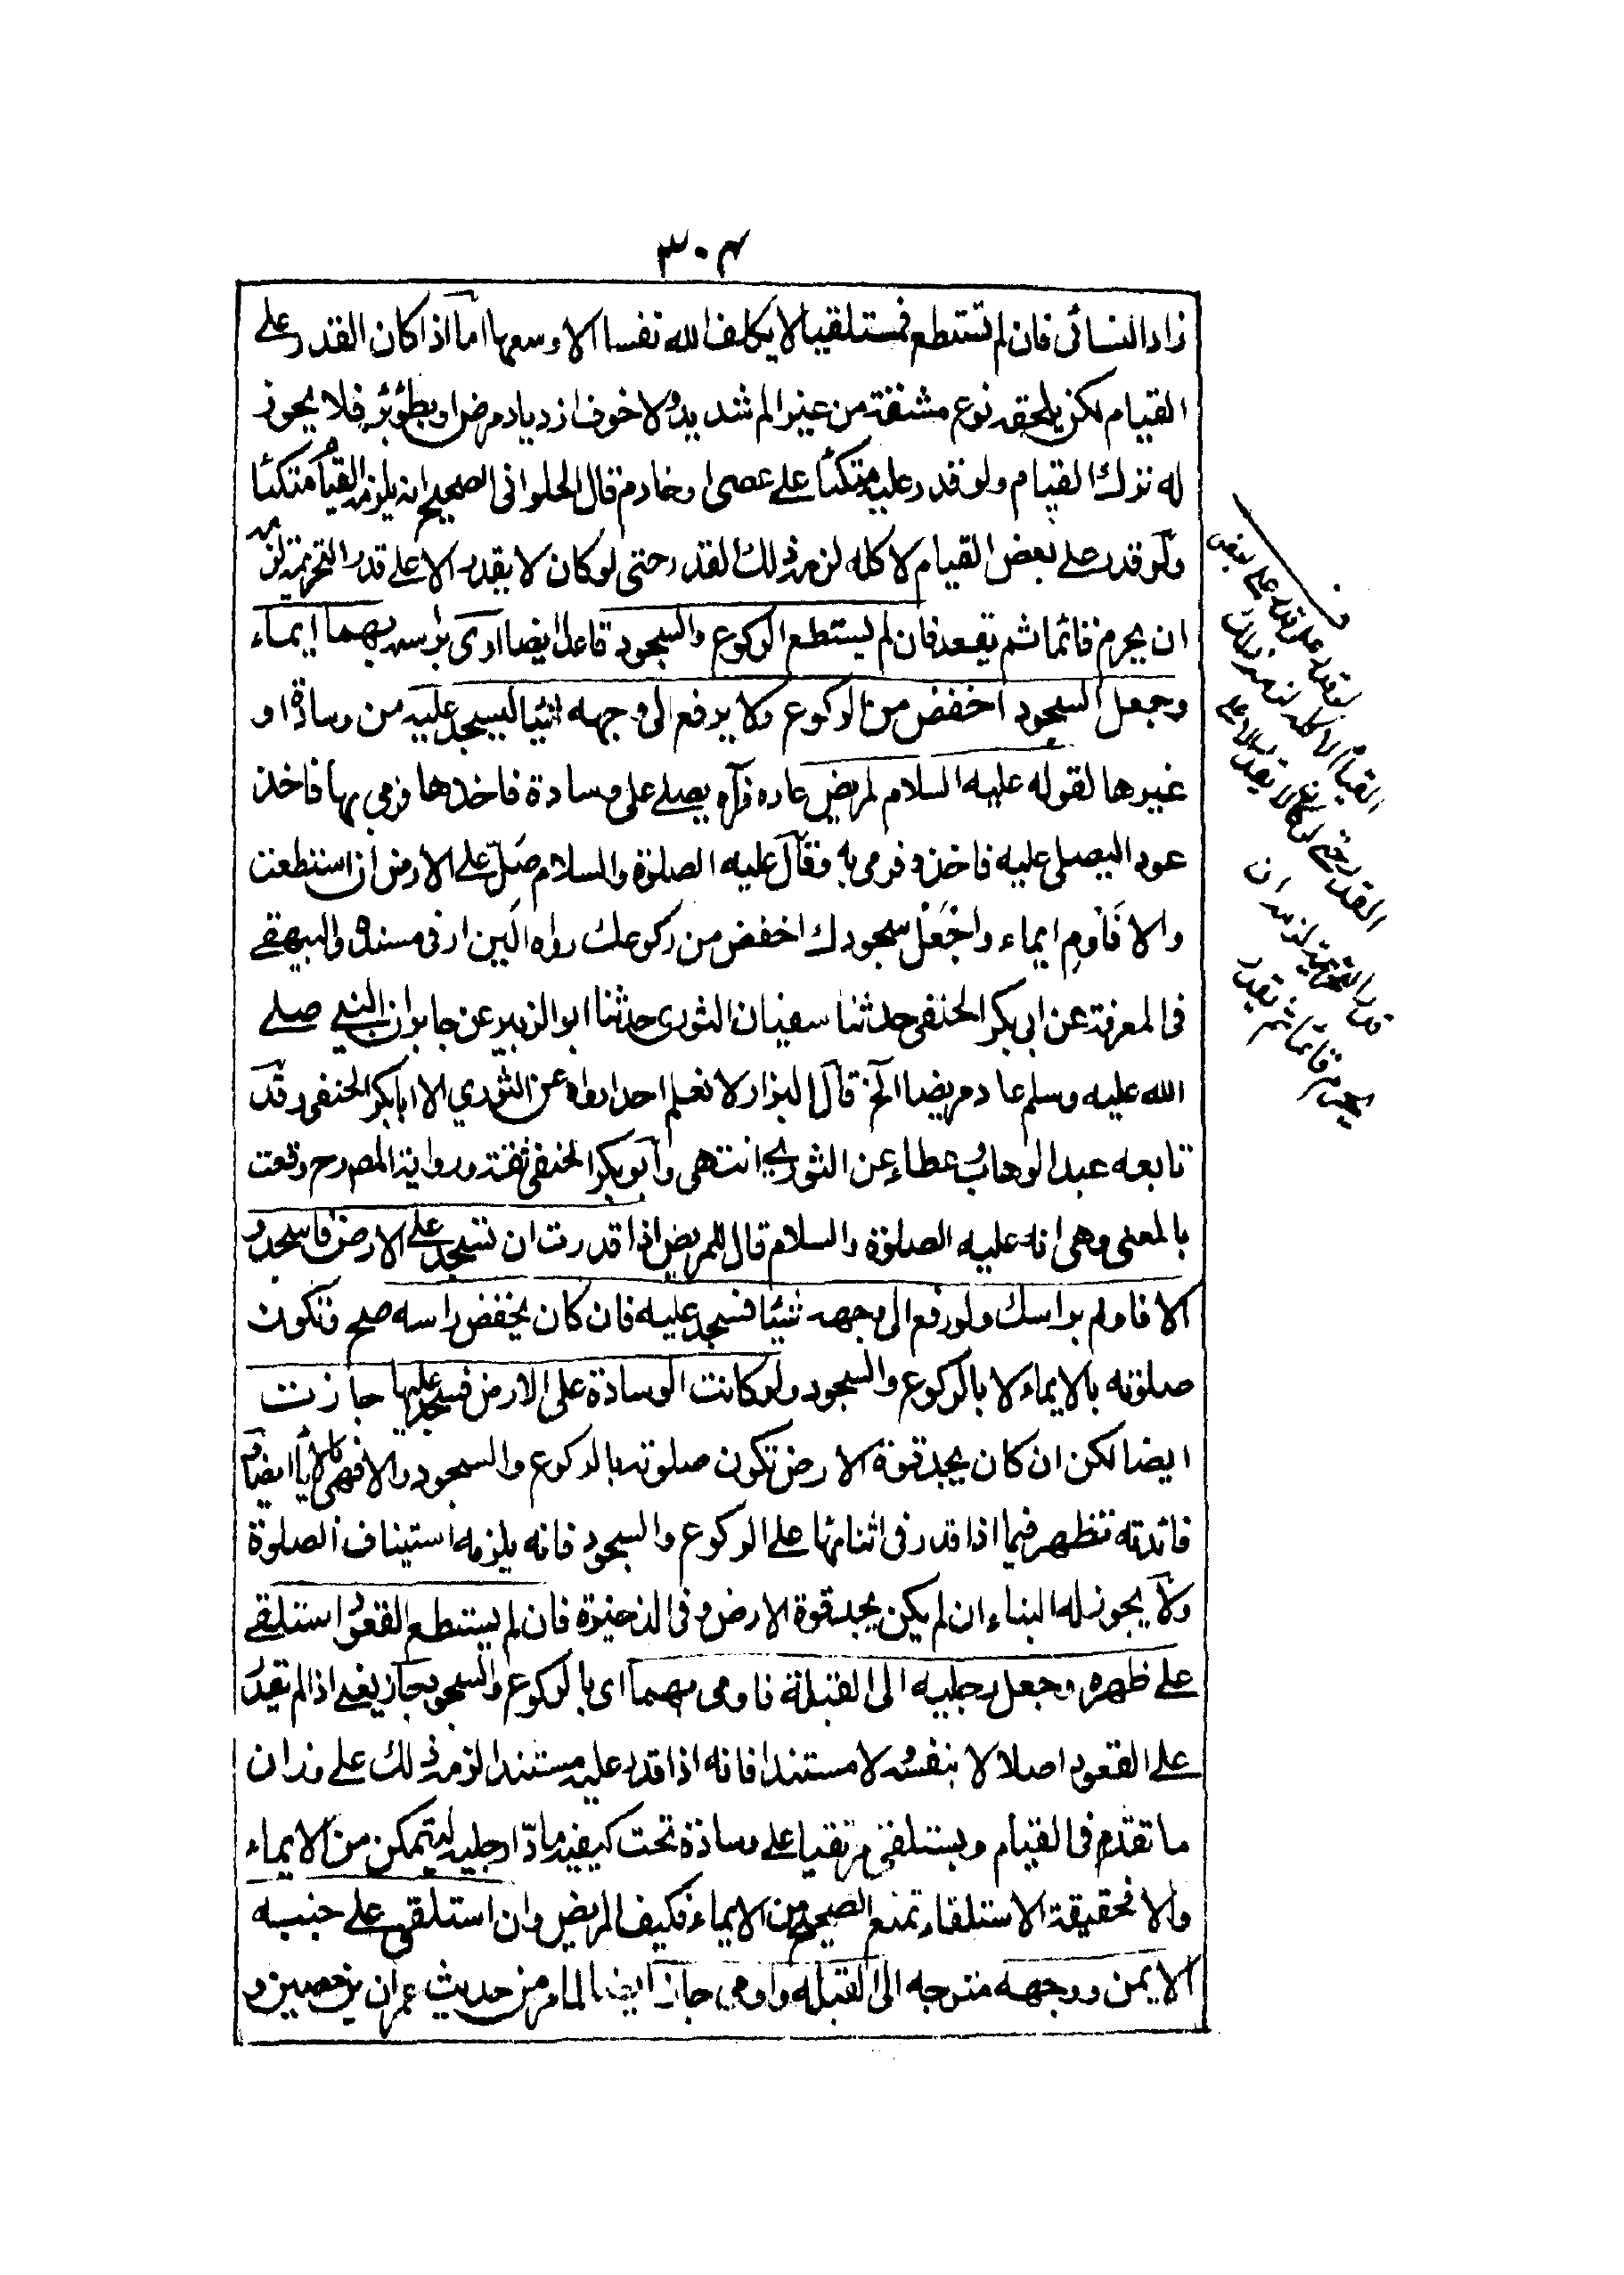 ٣٠٤
زاد النسائى فان لم تستطع فمستلقيا لا يكلف الله نفسا الا وسعها اما اذا كان القدر على
القيام لكن يلحقه نوع مشقة من غير الم شديد ولا خوف ازدياد مرض او بطؤ برء فلا يجوز
له ترك القيام ولو قدر عليه متكئا على عصى او خادم قال الحلوانى الصحيح انه يلزمه القيام متكئا
ولو قدر على بعض القيام لا كله لزمه ذلك القدر حتى لو كان لا يقدر الا على قدر التحريمة لزمه
ان يحرم قائما ثم يقعد فان لم يستطع الركوع والسجود قاعدا ايضا اومى براسه بهما ايماء
وجعل السجود اخفض من الركوع ولا يرفع الى وجهه شيئا ليسجد عليه من وسادة او
غيرها لقوله عليه السلام لمريض عاده فرآه يصلى على وسادة فاخذها فرمى بها فاخذ
عودا ليصلى عليه فاخذه فرمى به وقال عليه الصلوة والسلام صل على الارض ان استطعت
والا فاوم ايماء واجعل سجودك اخفض من ركوعك رواه البزار فى مسنده والبيهقى
فى المعرفة عن ابى بكر الحنفى حدثنا سفيان الثورى حدثنا ابو الزبير عن جابر ان النبى صلى
الله عليه وسلم عاد مريضا الخ قال البزار لا نعلم احدا رواه عن الثوري الا ابا بكر الحنفى وقد
تابعه عبد الوهاب وعطاء عن الثوري انتهى وابو بكر الحنفى ثقة ورواية المص رح وقعت
بالمعنى وهى انه عليه الصلوة والسلام قال للمريض اذا قدرت ان تسجد على الارض فاسجد و
الا فاوم براسك ولو رفع الى وجهه شيئا فسجد عليه فان كان يخفض راسه صح وتكون
صلوته بالايماء لا بالركوع والسجود ولو كانت الوسادة على الارض فسجد عليها جازت
ايضا لكن ان كان يجد قوة الارض تكون صلوته بالركوع والسجود والا فهى بالايماء ايضا و
فائدته تظهر فيما اذا قدر فى اثنائها على الركوع والسجود فانه يلزمه استيناف الصلوة
ولا يجوز له البناء ان لم يكن يجد قوة الارض وفى الذخيرة فان لم يستطع القعود استلقى
على ظهره وجعل رجليه الى القبلة فاومى بهما اى بالركوع والسجود جاز يعنى اذا لم يقدر
على القعود اصلا لا بنفسه ولا مستندا فانه اذا قدر عليه مستندا لزمه ذلك على وزان
ما تقدم فى القيام ويستلقى مرتقيا على وسادة تحت كتفيه مادا رجليه ليتمكن من الايماء
والا فحقيقة الاستلقاء تمنع الصحيح من الايماء فكيف المريض وان استلقى على جنبه
الايمن ووجهه متوجه الى القبلة واومى جاز ايضا لما مر من حديث عمران بن حصين و
ف
لو قدر على بعض
القيام لا كله لزمه ذلك
القدر حتى لو كان لا يقدر الا على
قدر التحريمة لزمه ان
يحرم قائما ثم يقعد